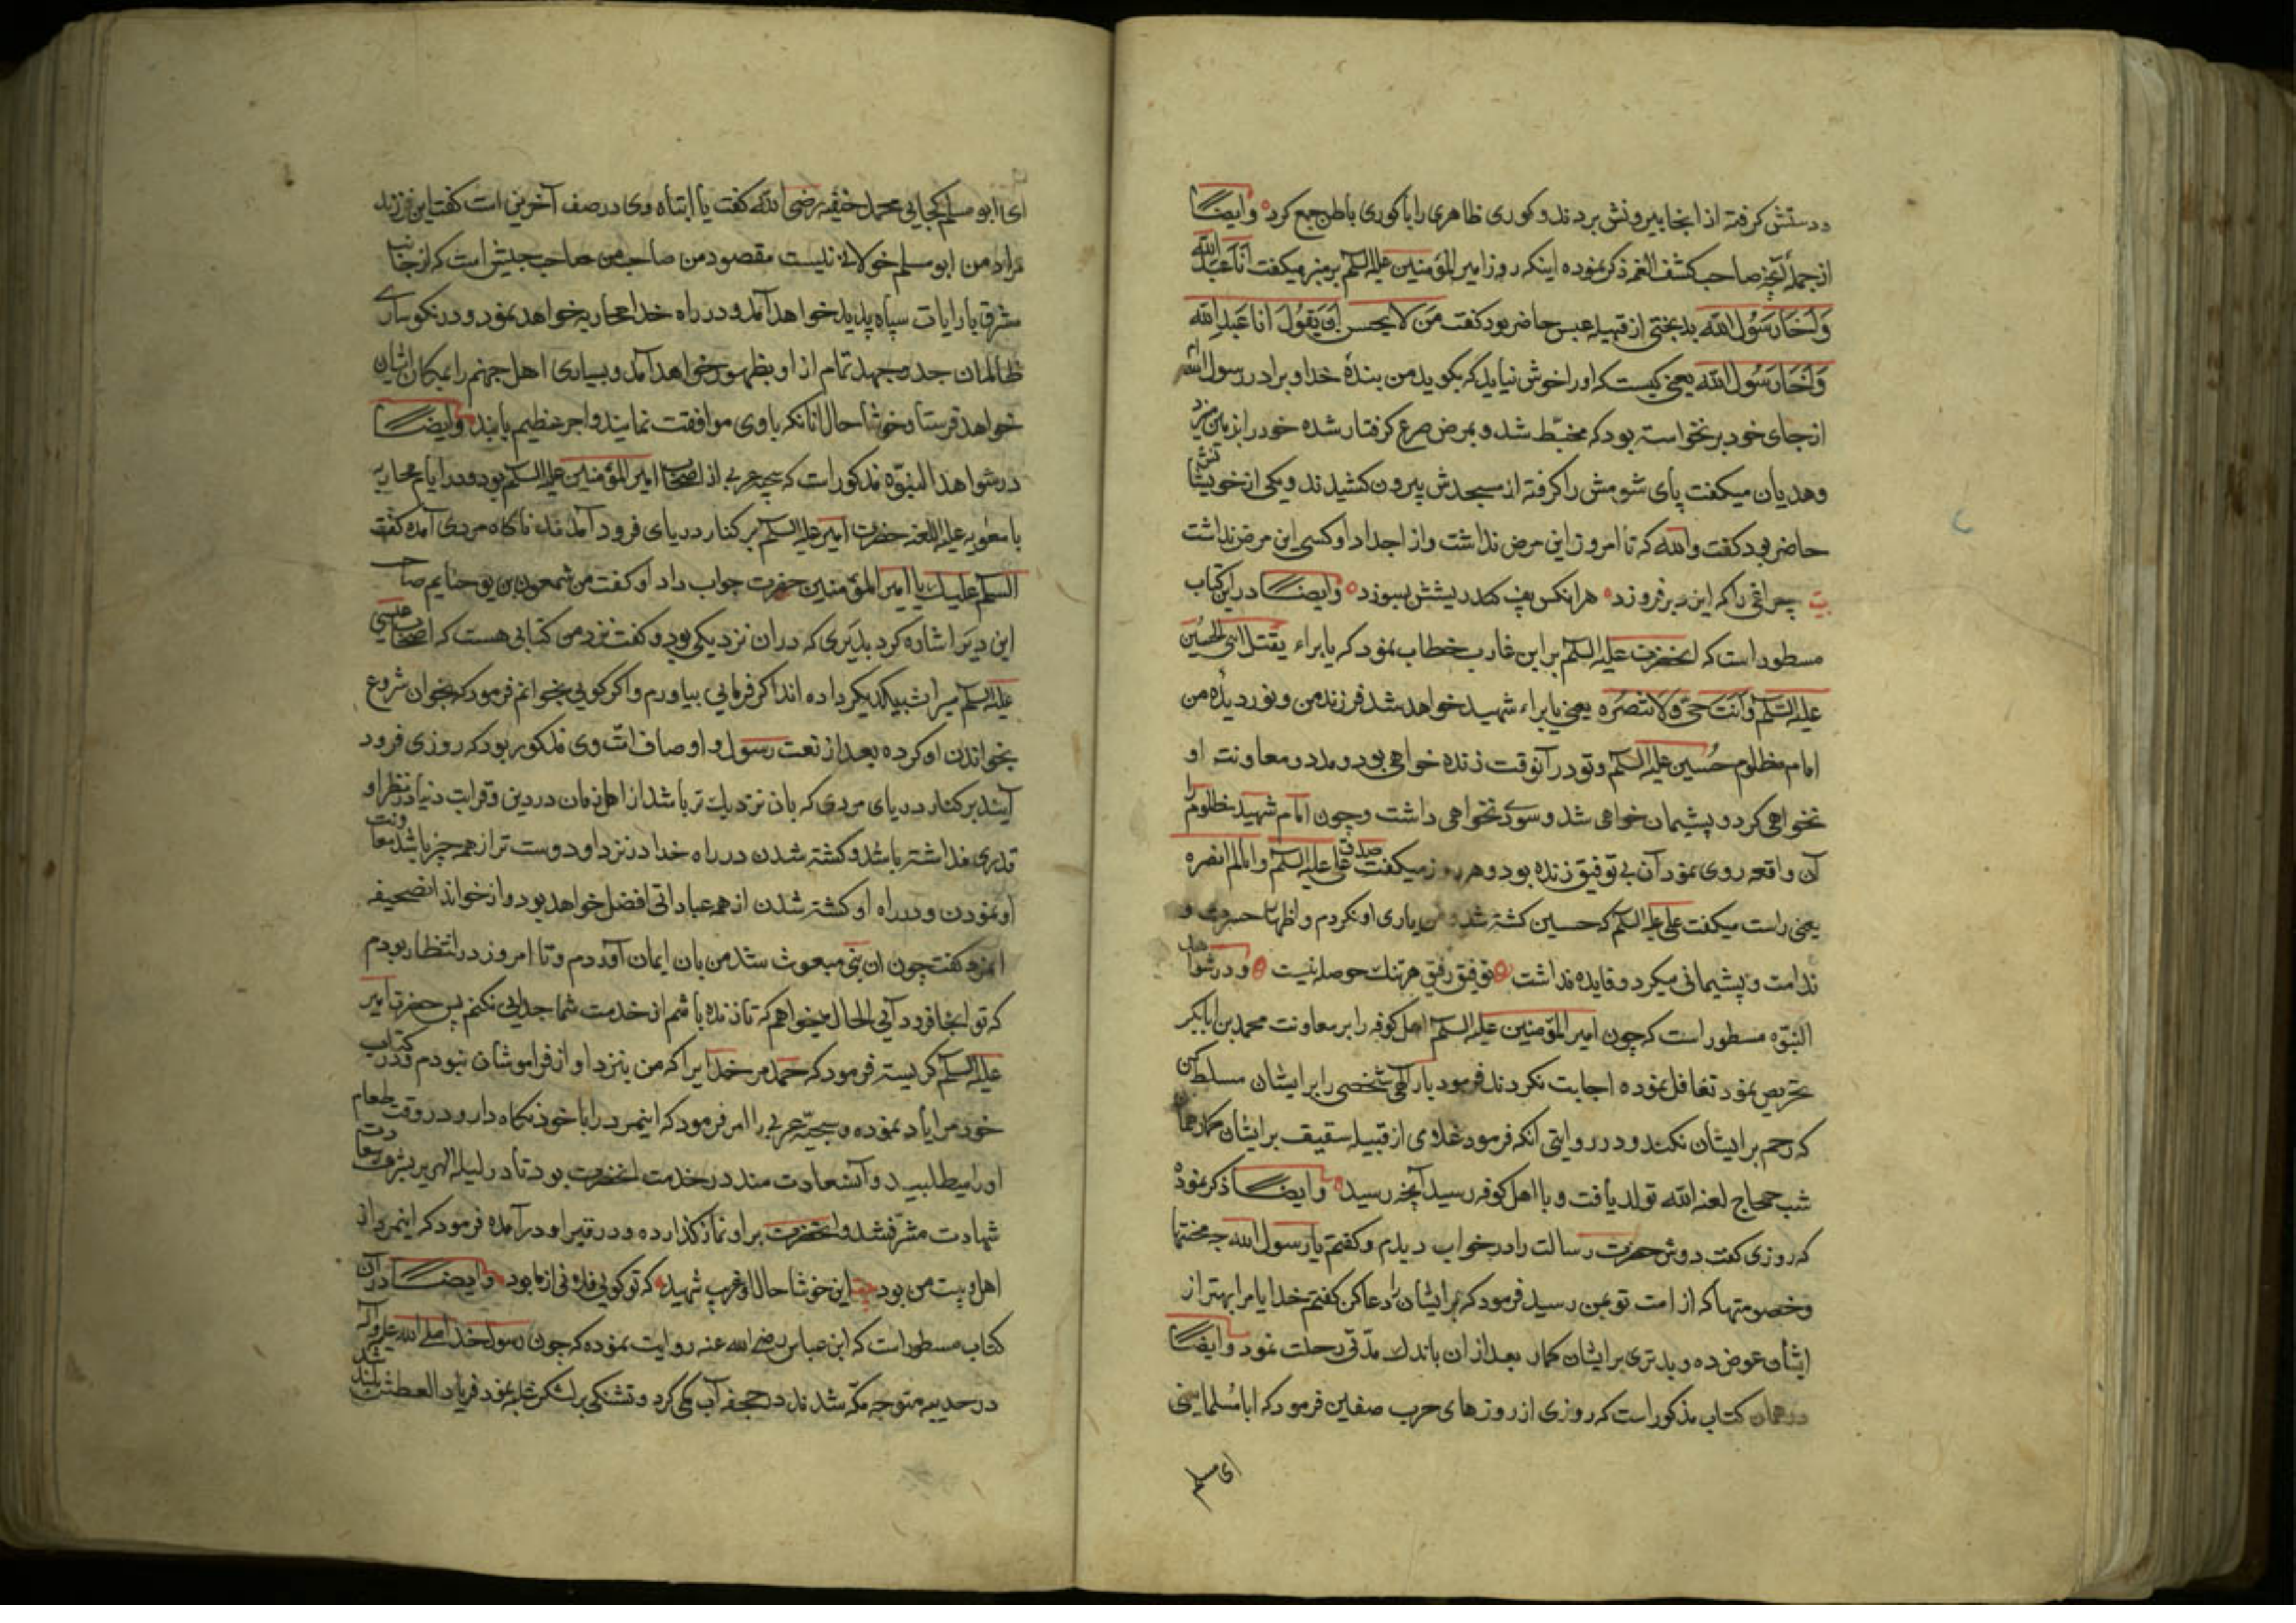 ودستش گرفته از انجا بیرونش بردند و کوری ظاهری را با کوری باطن جمع کرد وایضـــا
از جمله آنچه صاحب کشف الغمه ذکر نموده اینکه روز امیر المؤمنین علیه السلم بر منبر میکفت انا عبد الله
وَاَخَا رَسُول الله بدبختی از قبیله عبس حاضر بود کفت مَن لا یحسن ان یَقُولَ انا عَبد الله
وَاَخَا رَسُول الله یعنی کیست که او را خوش نیاید که بکوید من بندهٔ خدا و برادر رسول الله ام
از جای خود برنخواسته بود که مخبّط شد و بمرض صرع کرفتار شده خود را بزمین میزد
وهدیان میکفت پای شومش را کرفته از مسجدش بیرون کشیدند و یکی از خویشانش
حاضر بود کفت والله که تا امروز این مرض نداشت و از اجداد او کسی این مرض نداشت
بیت چراغی را که ایزد برفروزد هر انکس پف کند ریشش بسوزد وایضـــا در این کتاب
مسطور است که انحضرت علیه السلم بر ابن عازب خطاب نمود که یا براء یقتل ابنی الحسین
علیه السّلم وَاَنتَ حَیّ وَلا تنصُرَه یعنی یا براء شهید خواهد شد فرزند من و نور دیدهٔ من
امام مظلوم حُسین علیه السلم و تو در آنوقت زنده خواهی بود و مدد و معاونت او
نخواهی کرد و پشیمان خواهی شد و سودی نخواهی داشت و چون امام شهید مظلوم را
آن واقعه روی نمود آن بی توفیق زنده بود و هر روز میکفت صدق علی علیه السلم و انا لم انصره
یعنی راست میکفت علی علیه السلم که حسین کشته شد و من یاری او نکردم و اظهار حسرت و
ندامت و پشیمانی میکرد و فایده نداشت توفیق رفیق هر تنک حوصله نیست و در شواهد
النبوّه مسطور است که چون امیر المؤمنین علیه السلم اهل کوفه را بر معاونت محمد بن ابا بکر
تحریص نمود تغافل نموده اجابت نکردند فرمود بار الهی شخصی را بر ایشان مسلط کن
که رحم بر ایشان نکند و در روایتی انکه فرمود غلامی از قبیله سقیف بر ایشان کمار همان
شب حجاج لعنه الله تولد یافت و با اهل کوفه رسید آنچه رسید وایضـــا ذکر نموده
که روزی کفت دوش حضرت رسالت را در خواب دیدم و کفتم یا رسول الله چه محنتها
و خصومتها که از امت تو بمن رسید فرمود که بر ایشان را دعا کن کفتم خدایا مرا بهتر از
ایشان عوض ده و بدتری بر ایشان کمار بعد از ان باندک مدّتی رحلت نمود وایضـــا
در همان کتاب مذکور است که روزی از روزهای حرب صفین فرمود که ابا مسلما یعنی
ای مسلم
ای ابو مسلم کجایی محمد حنفیه رضی الله کفت یا ابتاه وی در صف آخرین است کفت ای فرزند
مراد من ابو مسلم خولانی نیست مقصود من صاحب من صاحب جیش است که از جانب
مشرق با رایات سیاه پدید خواهد آمد و در راه خدا محاربه خواهد نمود و در نکوساری
ظالمان جد و جهد تمام از او بظهور خواهد آمد و بسیاری اهل جهنم را بمکان ایشان
خواهد فرستاد خوشا حال انانکه با وی موافقت نمایند و اجر عظیم یابند وایضـــا
در شواهد النبوّه مذکور است که حبه عربی از اصحاب امیر المؤمنین علیه السلم بود و در ایام محاربه
با معویه علیه اللعنه حضرت امیر علیه السلم بر کنار دریای فرود آمدند ناکاه مردی آمده کفت
السلم علیک یا امیر المؤمنین حضرت جواب داد او کفت من شمعون بن یوحنایم صاحب
این دیر و اشاره کرد بدیری که در ان نزدیکی بود و کفت نزد من کتابی هست که اصحاب عیسی
علیه السلم میراث بیکدیکر داده اند اکر فرمایی بیاورم و اکر کویی بخوانم فرمود که بخوان شروع
بخواندن او کرده بعد از نعت رسول و اوصاف امّت وی مذکور بود که روزی فرود
آیند بر کنار دریای مردی که بان نزدیک تر باشد از اهل زمان در دین و قرابت دنیا در نظر او
قدری نداشته باشد و کشته شدن در راه خدا در نزد او دوست تر از همه چیز باشد معاونت
او نمودن و در راه او کشته شدن از همه عباداتی افضل خواهد بود و از خواند ان صحیفه
انمرد کفت چون ان نبی مبعوث شد من بان ایمان آوردم و تا امروز در انتظار بودم
که تو اینجا فرود آیی الحال میخواهم که تا زنده باشم از خدمت شما جدایی نکنم پس حضرت امیر
علیه السلم کریسته فرمود که حمد مر خدایرا که من بنزد او از فراموشان نبودم و در کتاب
خود مرا یاد نموده و حبه عربی را امر فرمود که اینمرد را با خود نکاه دار و در وقت طعام
او را میطلبید و آن سعادت مند در خدمت انحضرت بود تا در لیلة الهریر بشرف سعادت
شهادت مشرّف شد و انحضرت بر او نماز کذارده و در قبر او درآمده فرمود که اینمرد از
اهل بیت من بود این خوشا حال او غریب شهید که تو کویی فلانی از ما بود وایضـــا در آن
کتاب مسطور است که ابن عباس رضی الله عنه روایت نموده که چون رسول خدا صلی الله علیه و آله
در حدیبیه متوجه مکّه شدند در جحفه آب کمی کرد و تشنکی بر لشکر غلبه نمود فریاد العطش بلند شد